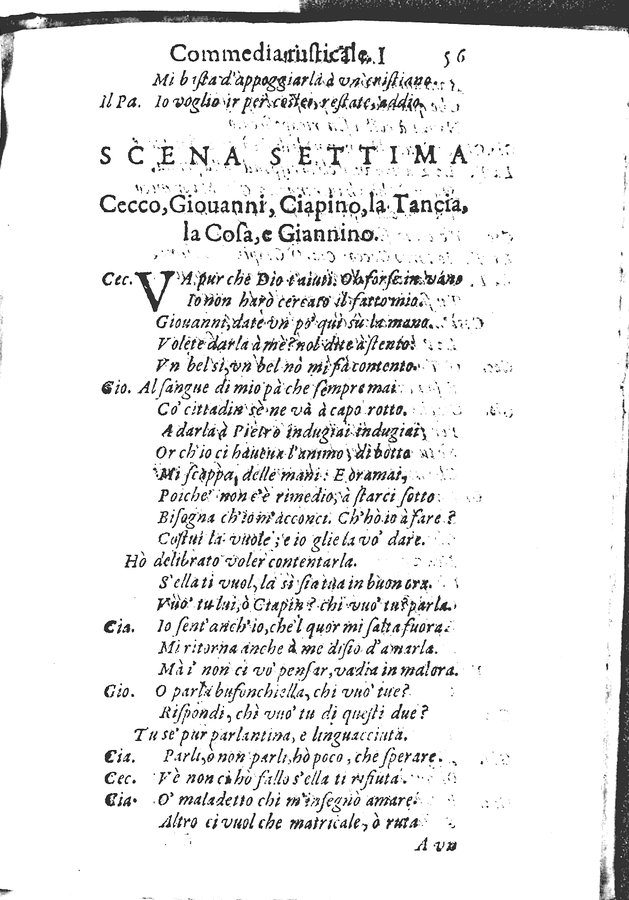 Commedia rusticale. I 56
Mi basta d'appoggiarla à vn cristiano.
Il Pa. Io voglio ir per costei, restate, addio.
SCENA SETTIMA
Cecco, Giouanni, Ciapino, la Tancia,
la Cosa, e Giannino.
Cec. VA pur che Dio t'aiuti. Oh forse in vano
Io non harò cercato il fatto mio.
Giouanni, date vn po' quì sù la mano.
Volete darla à me? nol dite à stento:
Vn bel sì, vn bel nò mi fà contento.
Gio. Al sangue di mio pà che sempre mai
Co' cittadin se ne và à capo rotto.
A darla à Pietro indugiai indugiai,
Or ch'io ci haueua l'animo, di botto
Mi scappa, delle mani: E oramai,
Poiche' non c'è rimedio, à starci sotto
Bisogna ch'io m'acconci. Ch'hò io à fare?
Costui la vuole, e io glie la vo' dare.
Hò delibrato voler contentarla.
S'ella ti vuol, la si sia tua in buon ora.
Vuo' tu lui, ò Ciapin? chi vuo' tu? parla.
Cia. Io sent' anch'io, che'l quor mi salta fuora.
Mi ritorna anche à me disio d'amarla.
Mà i' non ci vo' pensar, vadia in malora.
Gio. O parla bufonchiella, chi vuo' tue?
Rispondi, chi vuo' tu di questi due?
Tu se' pur parlantina, e linguacciuta.
Cia. Parli, ò non parli, hò poco, che sperare.
Cec. V'è non ci hò fallo s'ella ti rifiuta.
Cia. O' maladetto chi m'insegnò amare:
Altro ci vuol che matricale, ò ruta
A vn